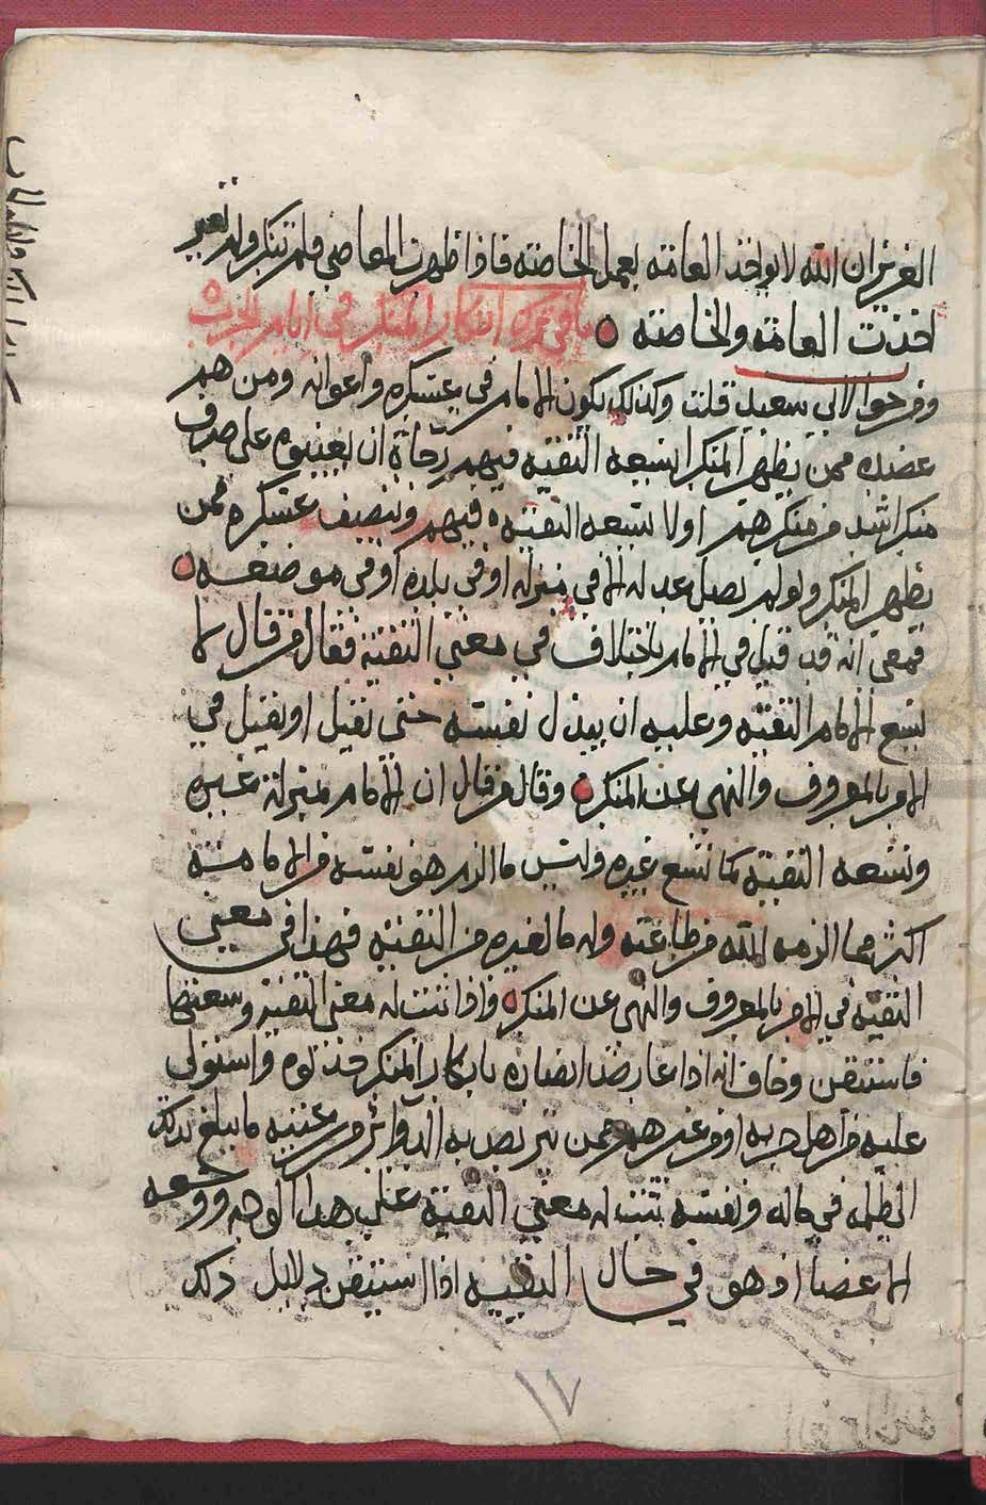 العزيز ان الله لا يواخذ العامة بعمل الخاصة فاذا ظهرت المعاصي فلم تنكر ولم تغير
اخذت العامة والخاصة باقي في انكار المنكر في ايام الحرب
ومن جواب لابي سعيد قلت وكذلك يكون الامام في عسكره واعوانه ومن هم
عضده ممن يظهر المنكر ايسعه التقية فيهم رجاة ان يعينوه على صرف
منكر اشد من منكرهم اولا يسعه التقية فيهم وينصف عسكره ممن
يظهر المنكر ولو لم يصل عدله الا في منزله او في بلده او في موضعه
فمعي انه قد قيل في الامام باختلاف في معنى التقية فقال من قال لا
تسع الامام التقية وعليه ان يبذل نفسه حتى يقتل او يقتل في
الامر بالمعروف والنهي عن المنكر وقال من قال ان الامام بمنزلة غيره
وتسعه التقية كما تسع غيره وليس ما الزم هو نفسه من الامامة
اكثر مما الزمه الله من طاعته وله ما لغيره من التقية فهذا في معنى
التقية في الامر بالمعروف والنهي عن المنكر واذا ثبت له معنى التقية وسعتها
فاستيقن وخاف انه اذا عارض انصاره بانكار المنكر خذلوه واستولى
عليه من اهل حربه او من غيرهم ممن يتربص به الدوائر من رعيته ما يبلغ بذلك
الى ظلمه في ماله ونفسه ثبت له معنى التقية على هذا الوجه ووسعه
الاغضا اذ هو في حال التقية اذا استيقن دلايل ذلك
١٧